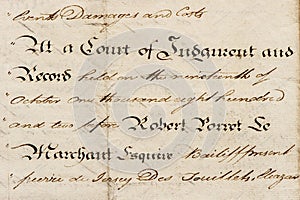 Costs Damages and Costs
At a Court of Judgment and
Record held on the nineteenth of
October one thousand eight hundred
and two before Robert Porret Le
Marchant Esquire Bailiff present
Pierre de Jersey Des